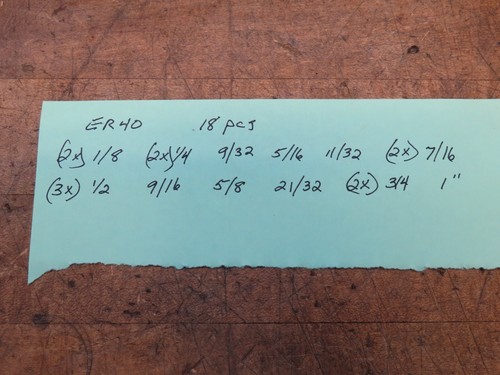 ER40 18 pcs
(2x) 1/8 (2x) 1/4 9/32 5/16 11/32 (2x) 7/16
(3x) 1/2 9/16 5/8 21/32 (2x) 3/4 1"